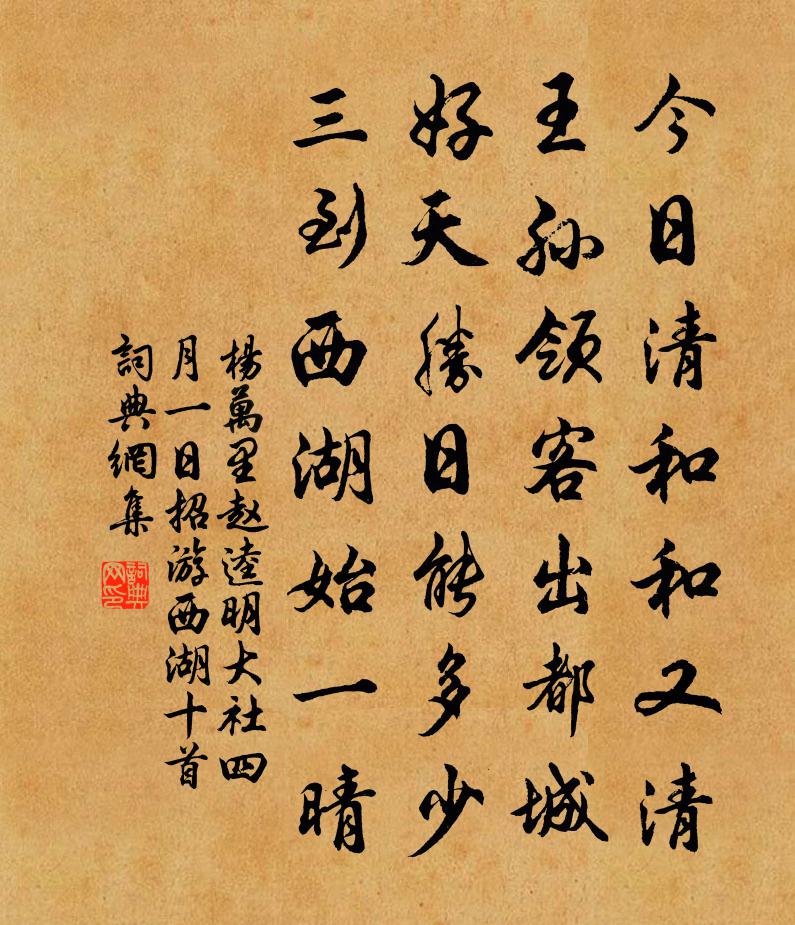 今日清和和又清
王孫領客出都城
好天勝日能多少
三到西湖始一晴
楊萬里趙逵明大社四
月一日招游西湖十首
詞典網集
詞典網印